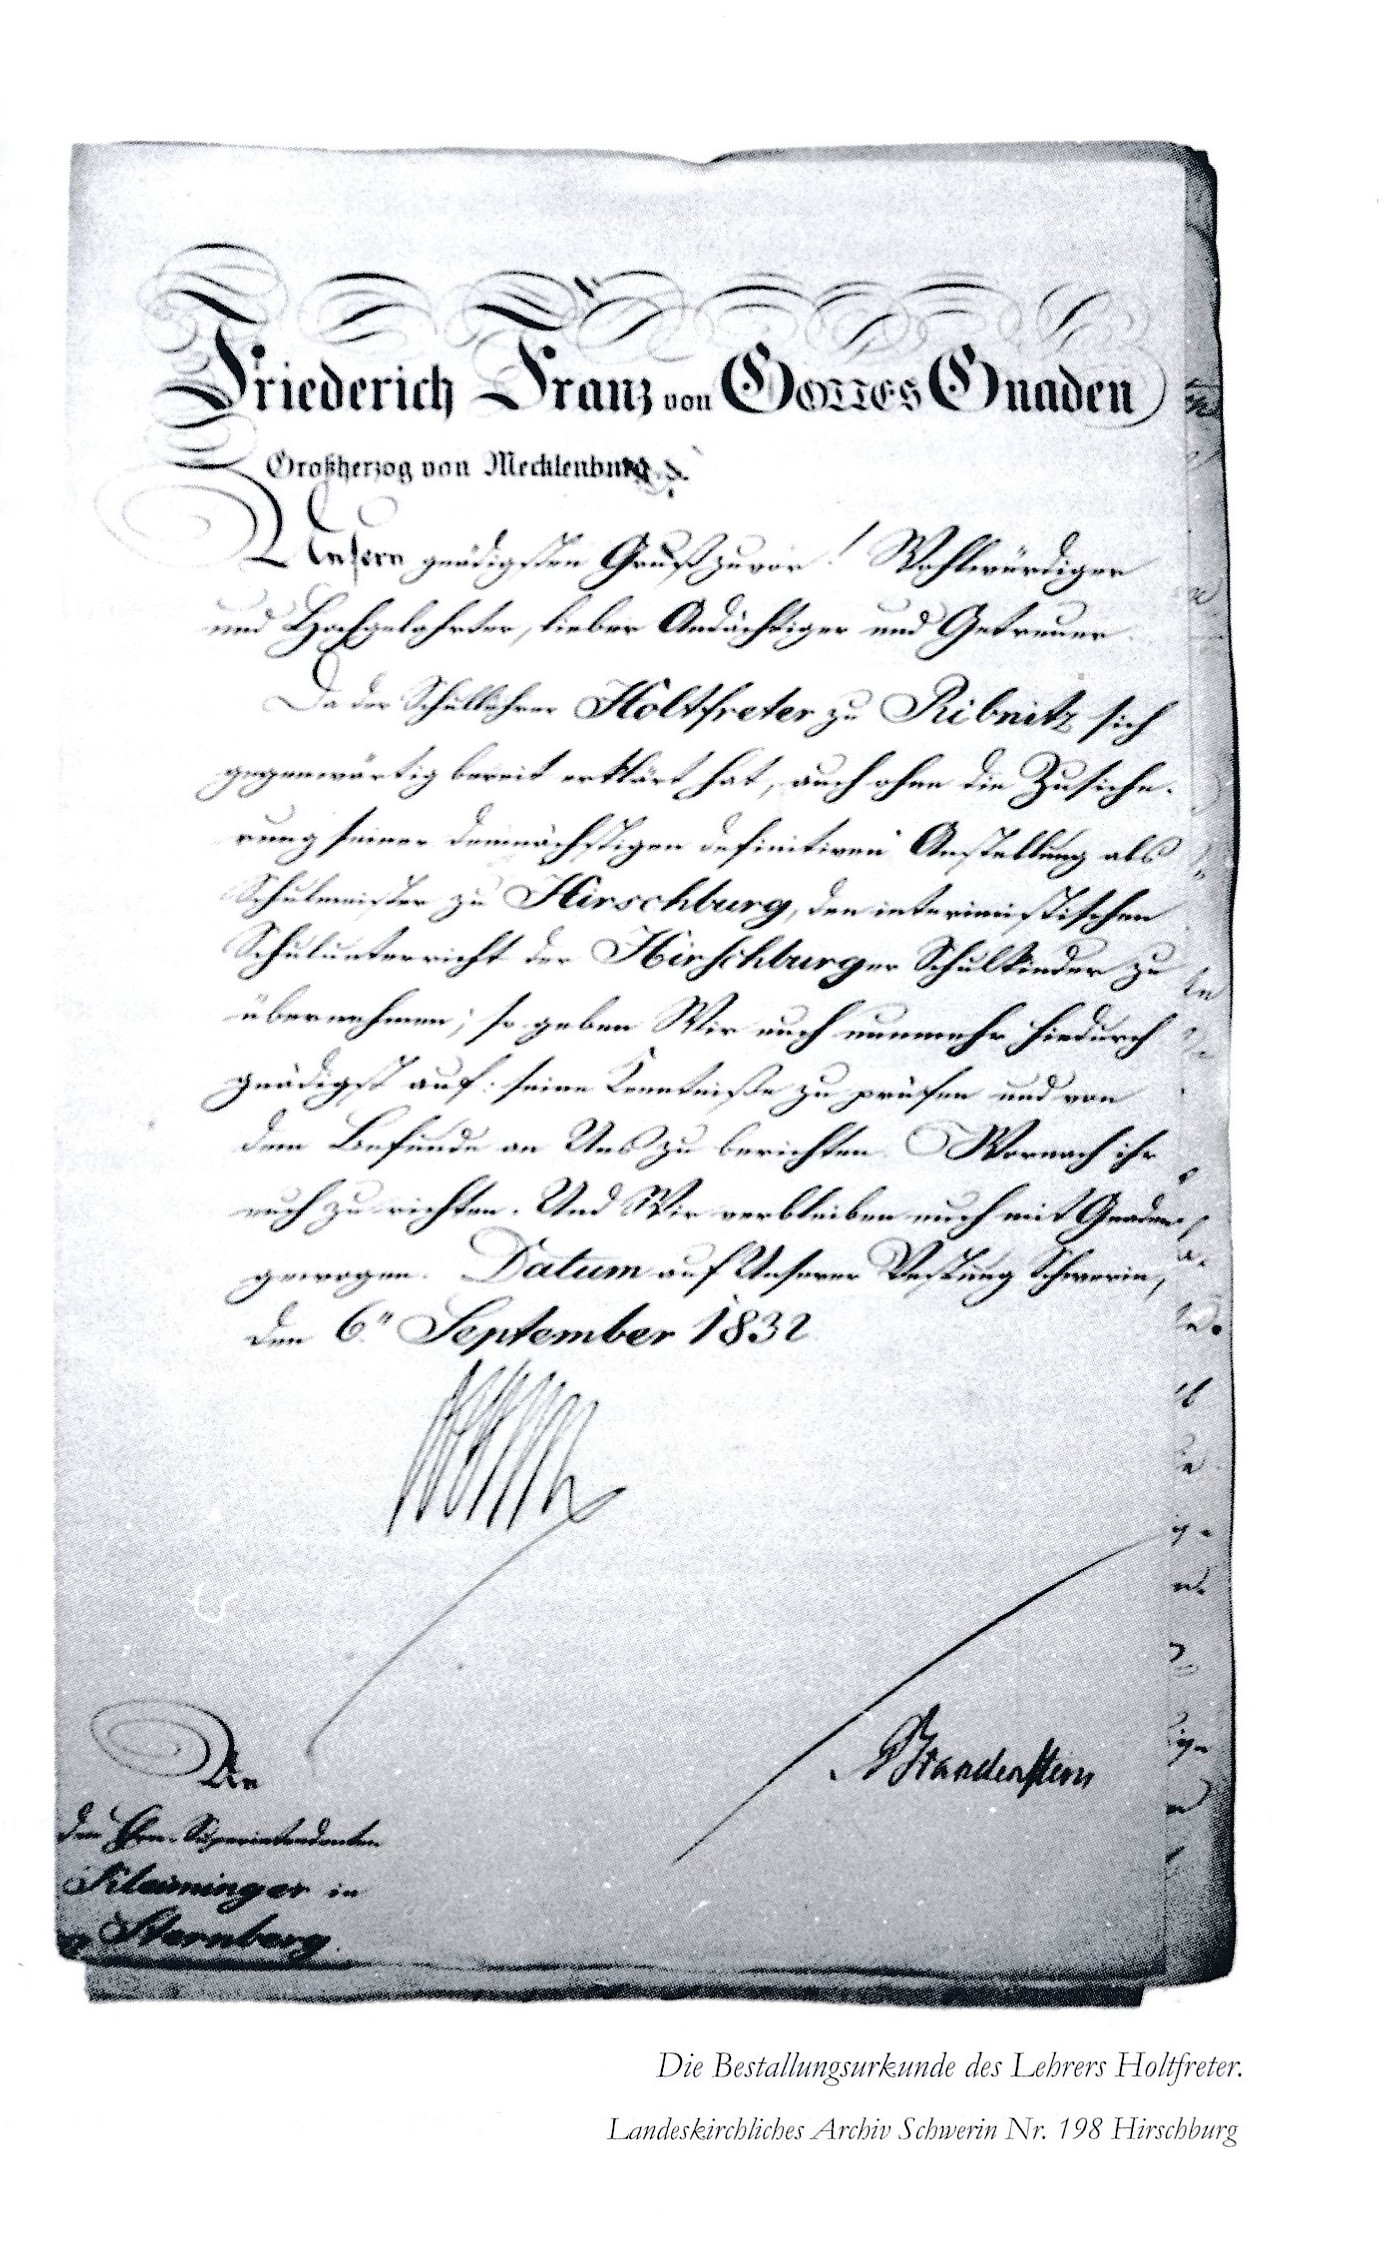 Friederich Franz von GOTTES Gnaden
Großherzog von Mecklenburg
Unsern gnädigsten Gruß zuvor! Wohlwürdiger
und Hochgelahrter, lieber Andächtiger und Getreuer.
Da der Schullehrer Holtfreter zu Ribnitz sich
gegenwärtig bereit erklärt hat, auch ohne die Zusiche-
rung seiner demnächstigen definitiven Anstellung als
Schulmeister zu Hirschburg, den interimistischen
Schulunterricht der Hirschburger Schulkinder zu
übernehmen; so geben Wir euch nunmehr hiedurch
gnädigst auf: seine Kenntniße zu prüfen und von
dem Befunde an Uns zu berichten. Wornach ihr
euch zu richten. Und Wir verbleiben euch mit Gnaden
gewogen. Datum auf Unserer Vestung Schwerin,
den 6n September 1832
An
den Ehrn-Superintendenten
Kleiminger in
Sternberg.
Die Bestallungsurkunde des Lehrers Holtfreter.
Landeskirchliches Archiv Schwerin Nr. 198 Hirschburg